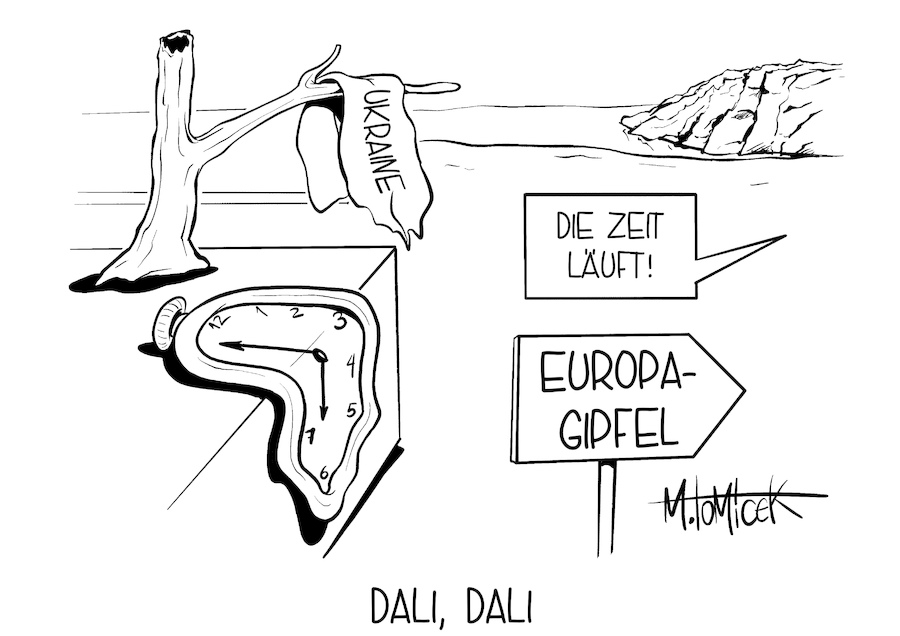 UKRAINE
DIE ZEIT
LÄUFT!
12 1 2 3
4
5
7
6
EUROPA-
GIPFEL
M.TOMICEK
DALI, DALI